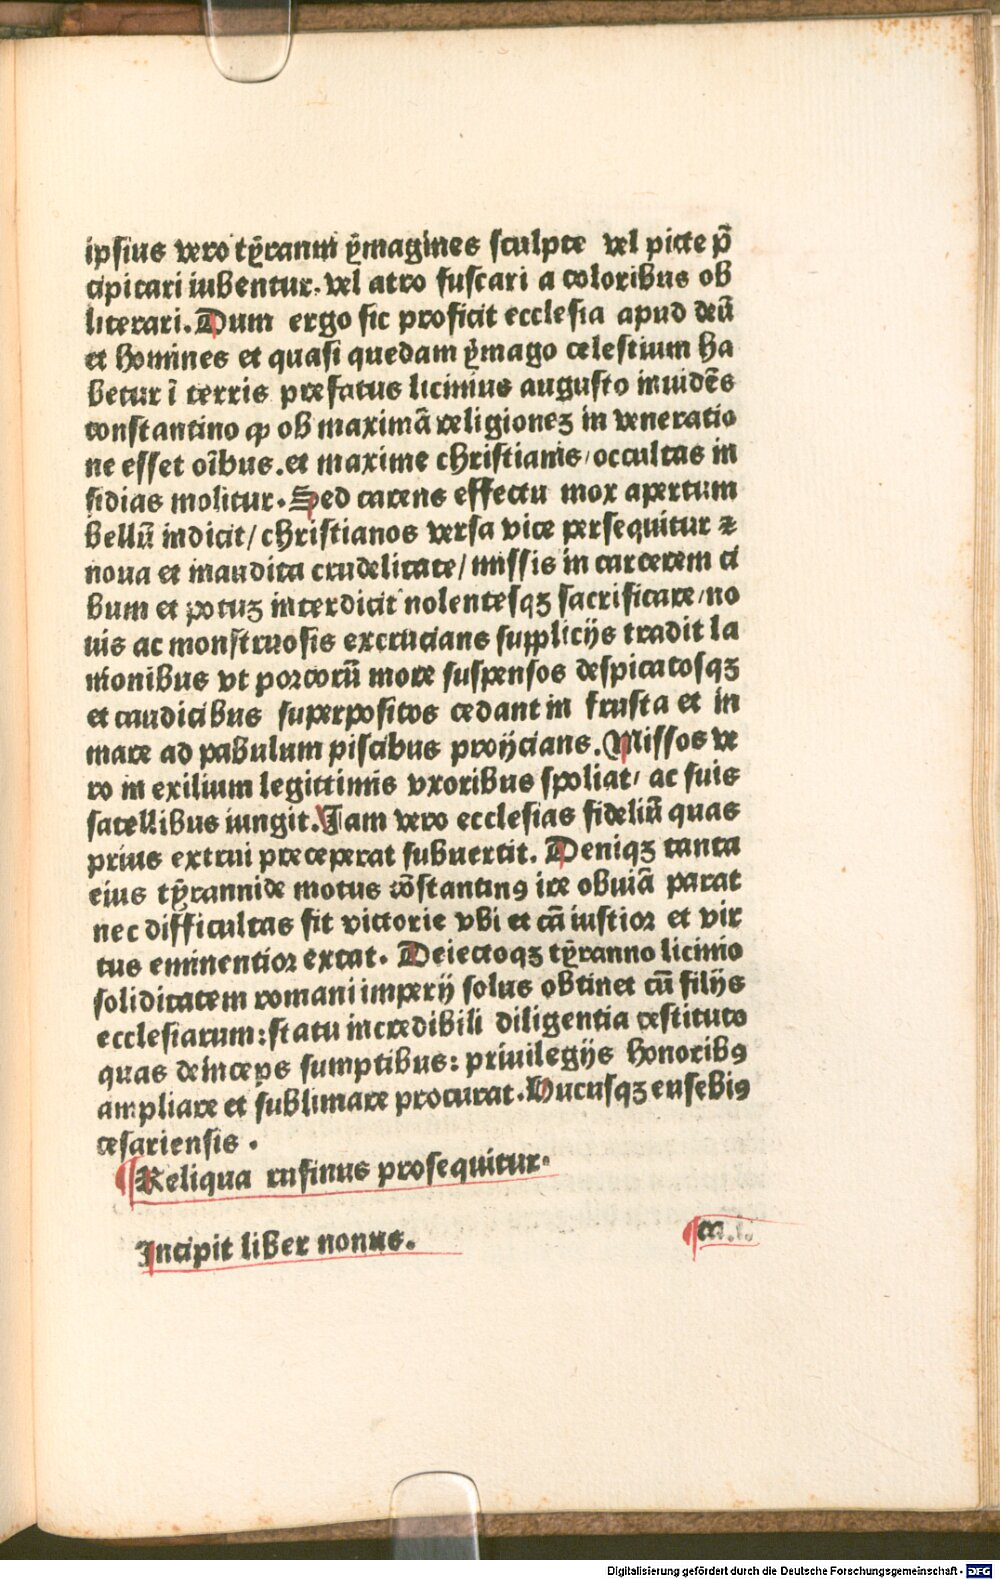 ipsius vero tÿranni ÿmagines sculpte vel picte p̄
cipitari iubentur. vel atro fuscari a coloribus ob
literari. Dum ergo sic proficit ecclesia apud deū
et homines et quasi quedam ÿmago celestium ha
betur ī terris prefatus licinius augusto inuidēs
constantino ꝙ ob maximā religionez in veneratio
ne esset oībus. et maxime christianis/ occultas in
sidias molitur. Sed carens effectu mox apertum
bellū indicit/ christianos versa vice persequitur ⁊
noua et inaudita crudelitate/ missis in carcerem ci
bum et potuꝫ interdicit nolentesqꝫ sacrificare/ no
uis ac monstruosis excrucians supplicijs tradit la
nionibus vt porcorū more suspensos despicatosqꝫ
et caudicibus superpositos cedant in frusta et in
mare ad pabulum piscibus proijcians. Missos ve
ro in exilium legittimis vxoribus spoliat/ ac suis
satellibus iungit. Jam vero ecclesias fideliū quas
prius extrui preceperat subuertit. Deniqꝫ tanta
eius tÿrannide motus cōstantinꝯ ire obuiā parat
nec difficultas fit victorie vbi et cā iustior et vir
tus eminentior extat. Deiectoqꝫ tÿranno licinio
soliditatem romani imperij solus obtinet cū filijs
ecclesiarum: statu incredibili diligentia restituto
quas deinceps sumptibus: priuilegijs honoribꝯ
ampliare et sublimare procurat. Hucusqꝫ eusebiꝯ
cesariensis .
¶ Reliqua rufinus prosequitur.
Jncipit liber nonus. ¶ ca. i.
Digitalisierung gefördert durch die Deutsche Forschungsgemeinschaft - DFG